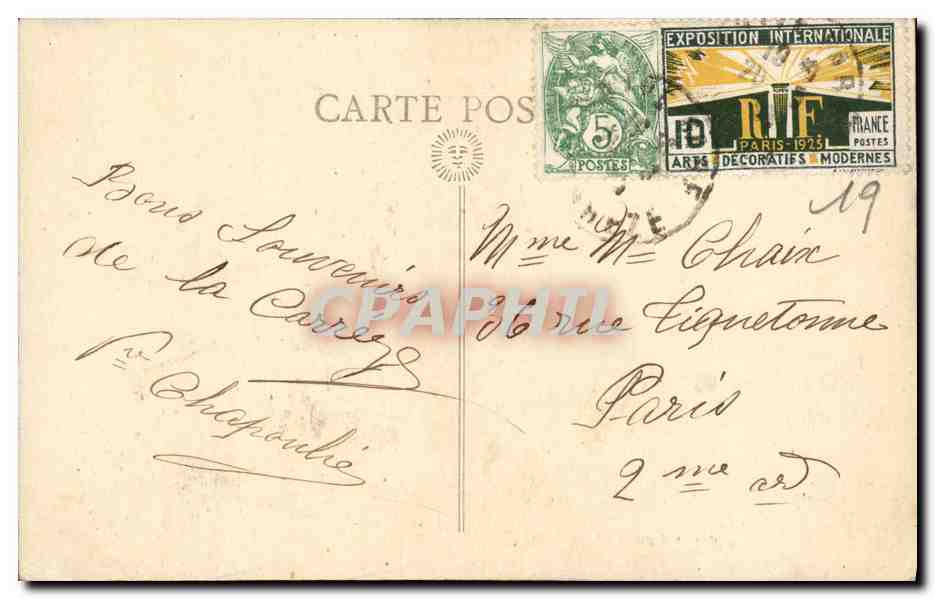 CARTE POS
5c
POSTES
EXPOSITION INTERNATIONALE
10
R F
FRANCE
POSTES
PARIS-1925
ARTS DECORATIFS MODERNES
19
Bons Souvenirs
de la Corrèze
Chapoulie
Mme Me Chaix
36 rue Tiquetonne
Paris
2 me ard.
CPAPHIL